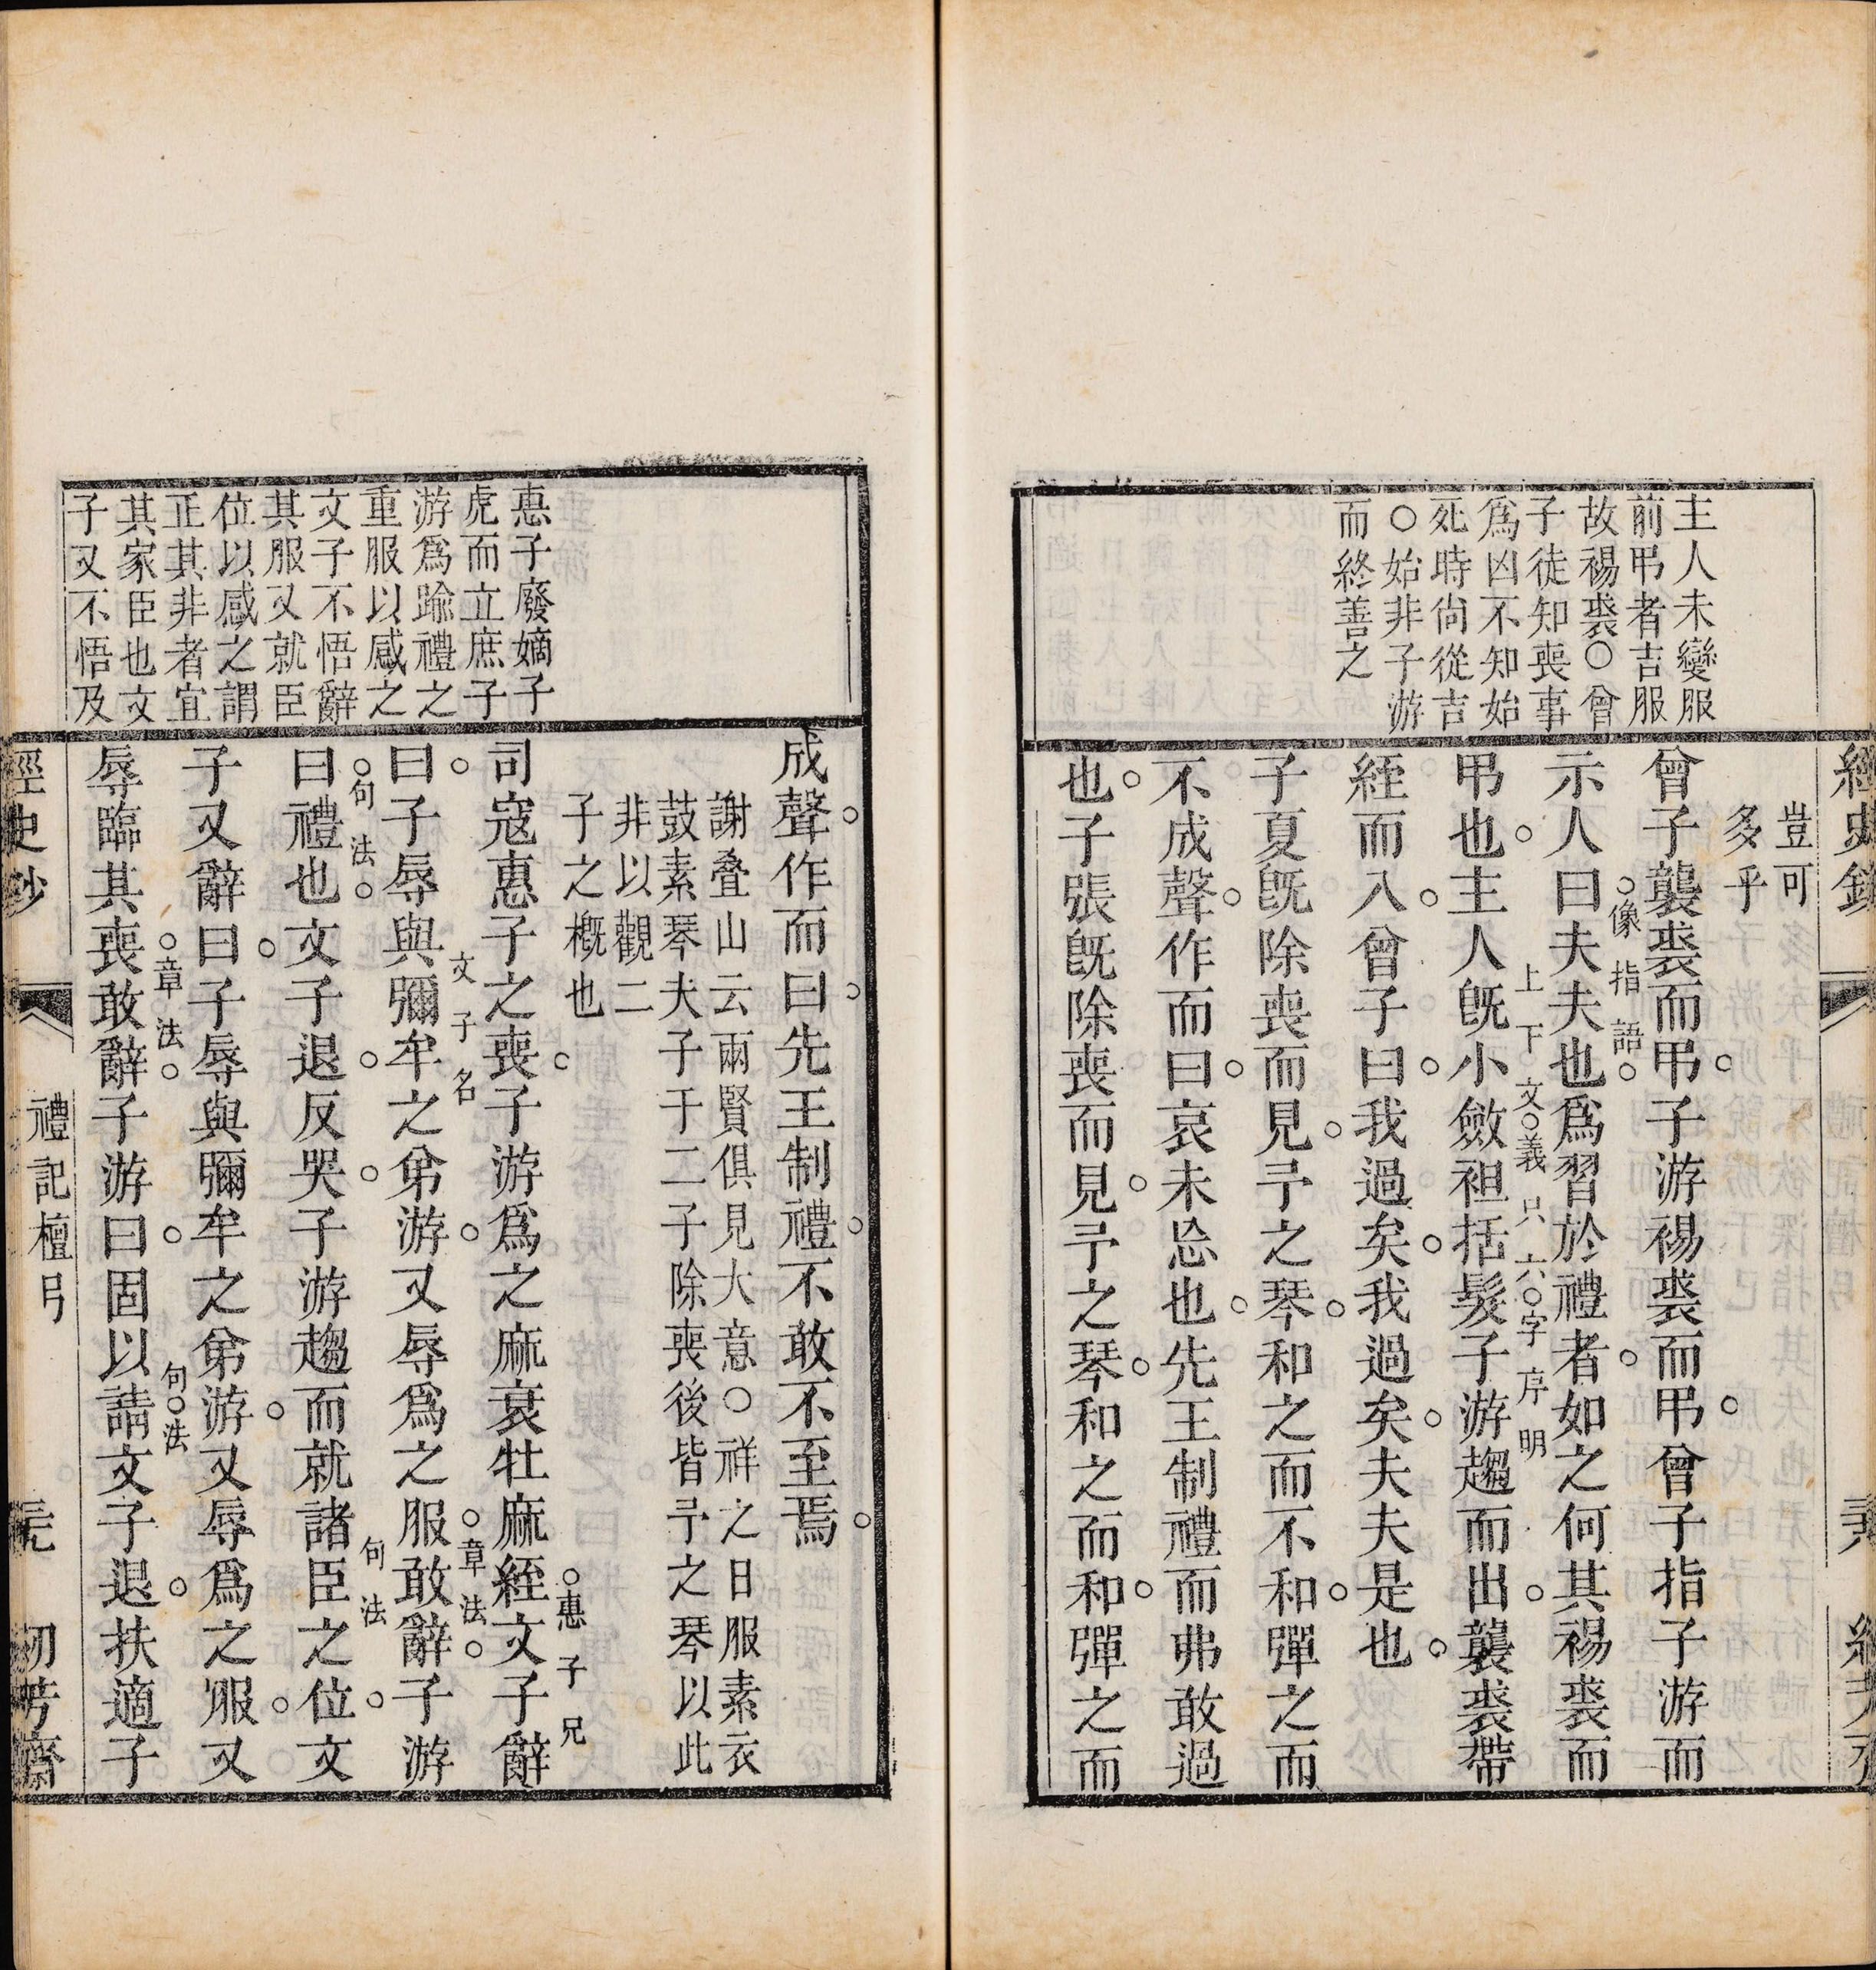 主人未變服
前弔者吉服
故裼裘○曾
子徒知喪事
爲凶不知始
死時尙從吉
○始非子游
而終善之
豈可
多乎
曾子襲裘而弔子游裼裘而弔曾子指子游而
示人曰夫夫也爲習於禮者如之何其裼裘而
像指語
弔也主人旣小斂袒括髮子游趨而出襲裘帶
上下文義只六字序明
絰而入曾子曰我過矣我過矣夫夫是也
子夏旣除喪而見予之琴和之而不和彈之而
不成聲作而曰哀未忘也先王制禮而弗敢過
也子張旣除喪而見予之琴和之而和彈之而
惠子廢嫡子
虎而立庶子
游爲踰禮之
重服以感之
文子不悟辭
其服又就臣
位以感之謂
正其非者宜
其家臣也文
子又不悟及
成聲作而曰先王制禮不敢不至焉
謝叠山云兩賢俱見大意○祥之日服素衣
鼓素琴夫子于二子除喪後皆予之琴以此
非以觀二
子之槪也
司寇惠子之喪子游爲之麻衰牡麻絰文子辭
惠子兄
曰子辱與彌牟之弟游又辱爲之服敢辭子游
文子名
章法
曰禮也文子退反哭子游趨而就諸臣之位文
句法
句法
子又辭曰子辱與彌牟之弟游又辱爲之服又
辱臨其喪敢辭子游曰固以請文子退扶適子
章法
句法
經史鈔
禮記檀弓